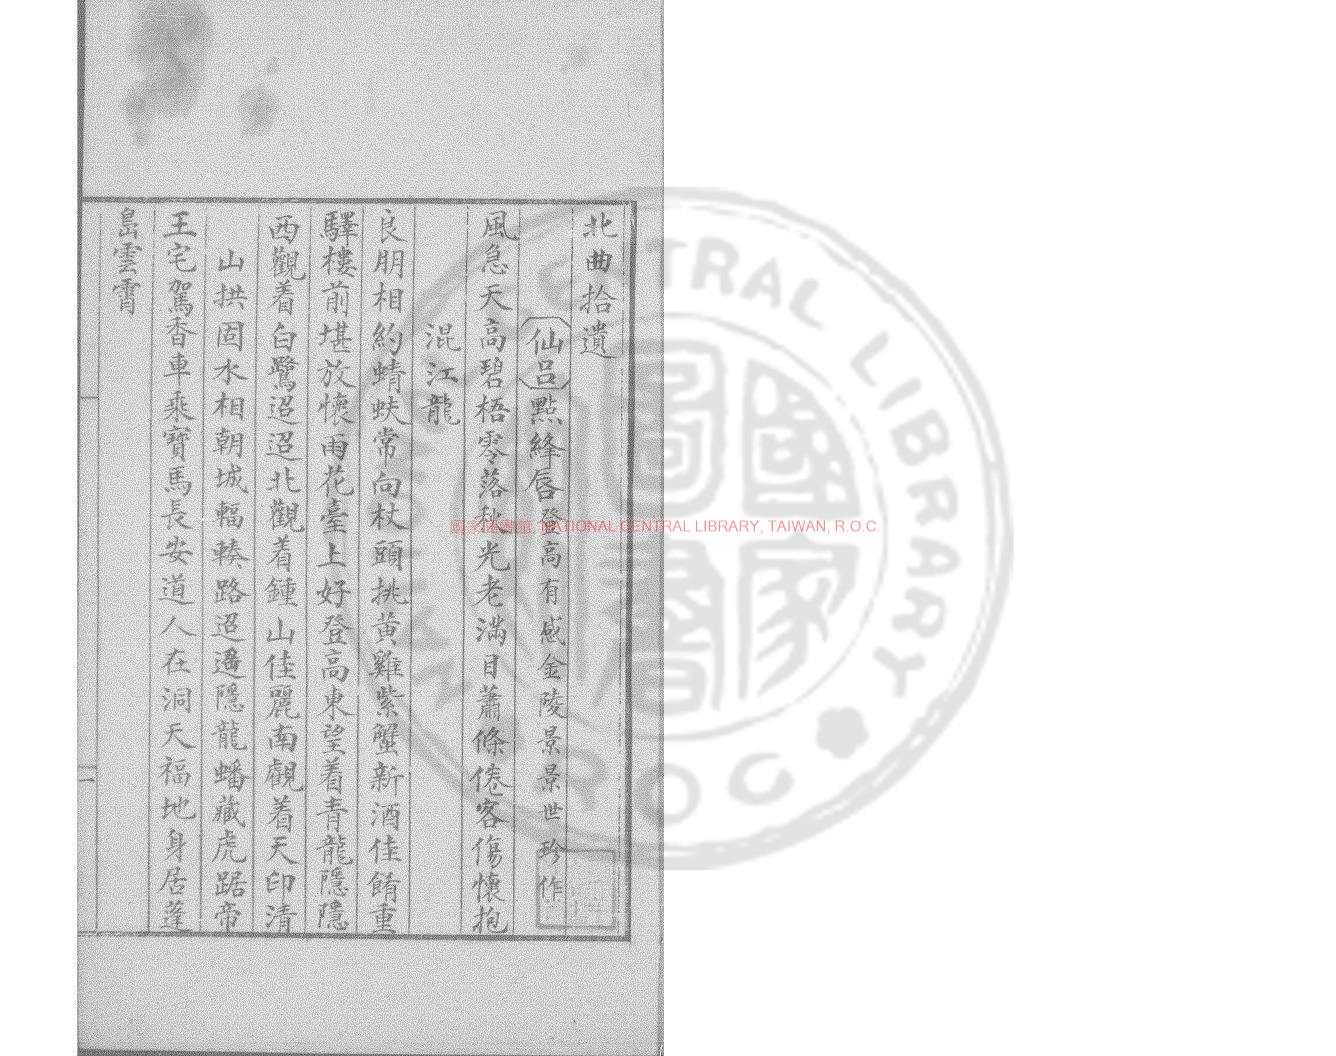 北曲拾遺
仙呂點絳唇登高有感金陵景景世珍作
風急天高碧梧零落秋光老滿目蕭條倦客傷懷抱
混江龍
良朋相約蜻蚨常向杖頭挑黃雞紫蟹新酒佳餚重
驛樓前堪放懷雨花臺上好登高東望着青龍隱隱
西觀着白鷺迢迢北觀着鍾山佳麗南觀着天印清
山拱固水相朝城輻輳路迢遙隱龍蟠藏虎踞帝
王宅駕香車乘寶馬長安道人在洞天福地身居蓬
島雲霄
一
國家圖書館, NATIONAL CENTRAL LIBRARY, TAIWAN, R.O.C.
NATIONAL CENTRAL LIBRARY
R.O.C.
國家圖書館